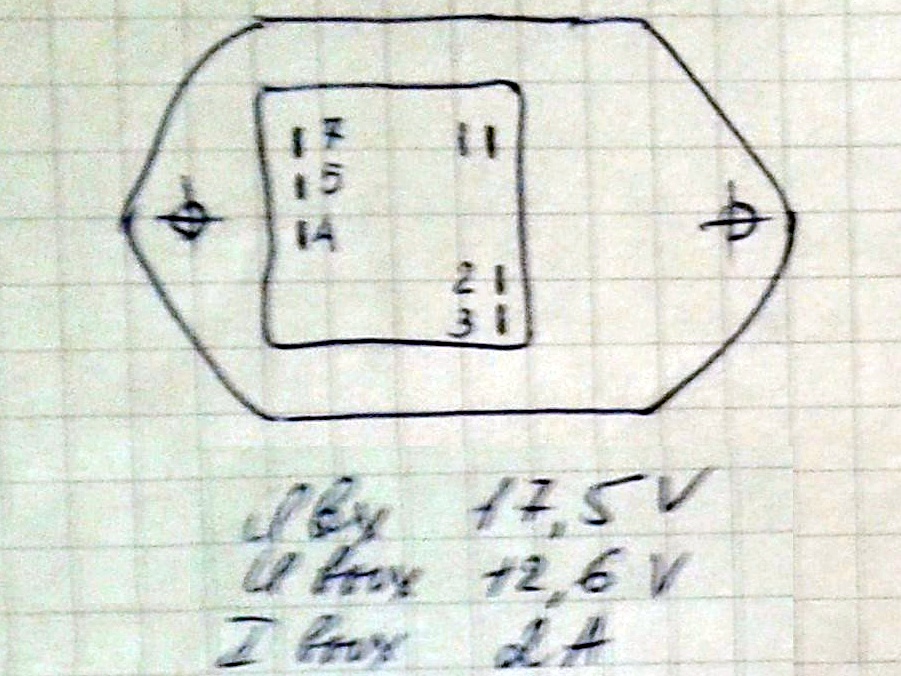 7 1
5
4
2
3
U вх 17,5 V
U вых 12,6 V
I вых 2 A